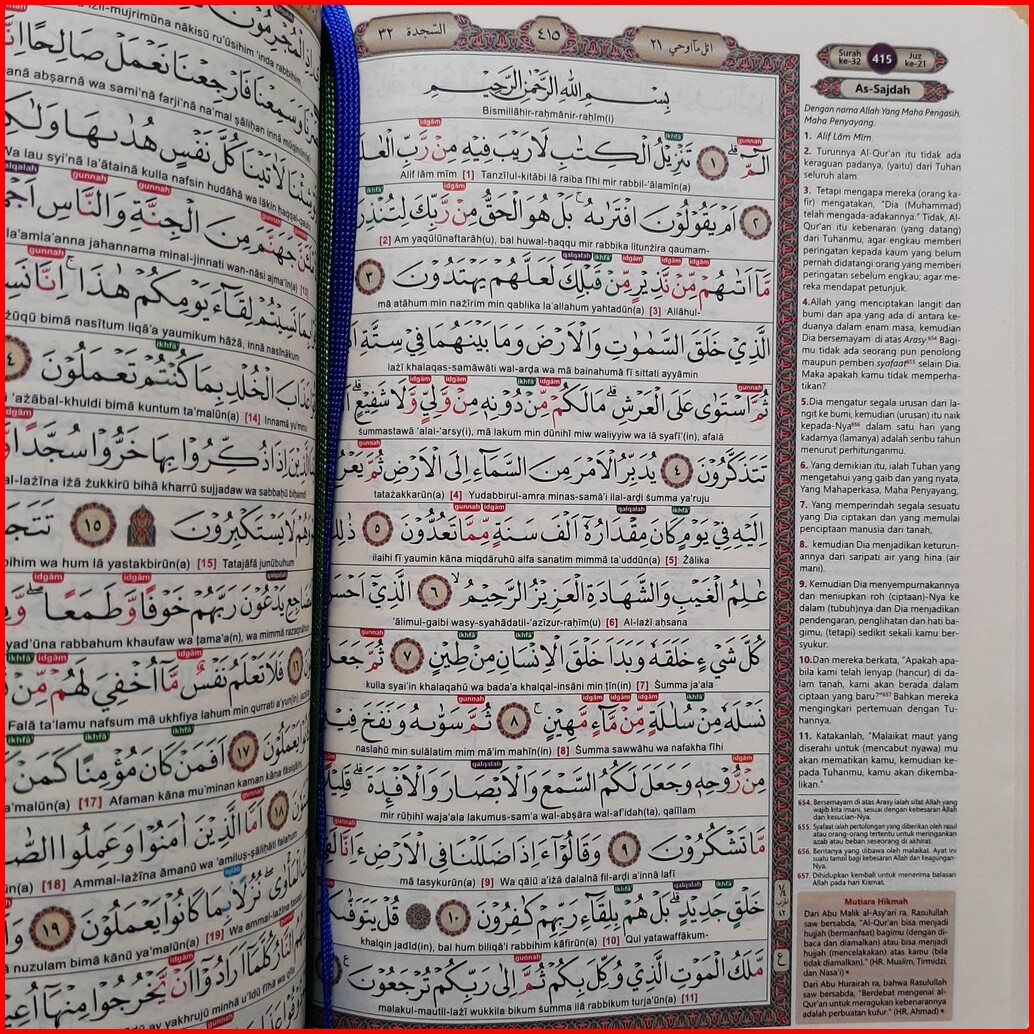 السّجدة ٣٢
٤١٥
اتل مآاوحي ٢١
بِسْمِ اللّٰهِ الرَّحْمٰنِ الرَّحِيْمِ
Bismillāhir-raḥmānir-raḥīm(i)
idgām ikhfā' gunnah
الۤمّۤ ۗ ١ تَنْزِيْلُ الْكِتٰبِ لَا رَيْبَ فِيْهِ مِنْ رَّبِّ
Alif lām mīm [1] Tanzīlul-kitābi lā raiba fīhi mir rabbil-'ālamīn(a)
ikhfā' idgām
٢ اَمْ يَقُوْلُوْنَ افْتَرٰىهُ ۚ بَلْ هُوَ الْحَقُّ مِنْ رَّبِّكَ
[2] Am yaqūlūnaftarāh(u), bal huwal-ḥaqqu mir rabbika litunżira qaumam-
qalqalah ikhfā' idgām idgām idgām
مَّآ اَتٰىهُمْ مِّنْ نَّذِيْرٍ مِّنْ قَبْلِكَ لَعَلَّهُمْ يَهْتَدُوْنَ ٣
mā atāhum min nażīrim min qablika la'allahum yahtadūn(a) [3] Allāhul-
الَّذِيْ خَلَقَ السَّمٰوٰتِ وَالْاَرْضَ وَمَا بَيْنَهُمَا فِيْ سِتَّةِ
lażī khalaqas-samāwāti wal-arḍa wa mā bainahumā fī sittati ayyāmin
idgām idgām ikhfā' idgām gunnah
ثُمَّ اسْتَوٰى عَلَى الْعَرْشِۗ مَا لَكُمْ مِّنْ دُوْنِهٖ مِنْ وَّلِيٍّ وَّلَا شَفِيْعٍۗ
ṡummastawā 'alal-'arsy(i), mā lakum min dūnihī miw waliyyiw wa lā syafī'(in), afalā
gunnah
تَتَذَكَّرُوْنَ ٤ يُدَبِّرُ الْاَمْرَ مِنَ السَّمَاۤءِ اِلَى الْاَرْضِ ثُمَّ
tatażakkarūn(a) [4] Yudabbirul-amra minas-samā'i ilal-arḍi ṡumma ya'ruju
gunnah idgām qalqalah ikhfā'
اِلَيْهِ فِيْ يَوْمٍ كَانَ مِقْدَارُهٗٓ اَلْفَ سَنَةٍ مِّمَّا تَعُدُّوْنَ ٥ ذٰلِكَ
ilaihi fī yaumin kāna miqdāruhū alfa sanatim mimmā ta'uddūn(a) [5] Żālika
عٰلِمُ الْغَيْبِ وَالشَّهَادَةِ الْعَزِيْزُ الرَّحِيْمُۙ ٦ الَّذِيْٓ
'ālimul-gaibi wasy-syahādatil-'azīzur-raḥīm(u) [6] Al-lażī aḥsana
gunnah ikhfā' ikhfā'
كُلَّ شَيْءٍ خَلَقَهٗ وَبَدَاَ خَلْقَ الْاِنْسَانِ مِنْ طِيْنٍ ٧ ثُمَّ جَعَلَ
kulla syai'in khalaqahū wa bada'a khalqal-insāni min ṭīn(in) [7] Ṡumma ja'ala
gunnah idgām idgām idgām ikhfā'
نَسْلَهٗ مِنْ سُلٰلَةٍ مِّنْ مَّاۤءٍ مَّهِيْنٍ ۚ ٨ ثُمَّ سَوّٰىهُ وَنَفَخَ فِيْهِ
naslahū min sulālatim mim mā'im mahīn(in) [8] Ṡumma sawwāhu wa nafakha fīhi
qalqalah idgām
مِنْ رُّوْحِهٖ وَجَعَلَ لَكُمُ السَّمْعَ وَالْاَبْصَارَ وَالْاَفْـِٕدَةَۗ قَلِيْلًا
mir rūḥihī waja'ala lakumus-sam'a wal-abṣāra wal-af'idah(ta), qalīlam
gunnah
مَّا تَشْكُرُوْنَ ٩ وَقَالُوْٓا ءَاِذَا ضَلَلْنَا فِى الْاَرْضِ ءَاِنَّا
mā tasykurūn(a) [9] Wa qālū a'iżā ḍalalnā fil-arḍi a'innā lafī
ikhfā' qalqalah ikhfā'
خَلْقٍ جَدِيْدٍ ەۗ بَلْ هُمْ بِلِقَاۤءِ رَبِّهِمْ كٰفِرُوْنَ ١٠ قُلْ
khalqin jadīd(in), bal hum biliqā'i rabbihim kāfirūn(a) [10] Qul yatawaffākum-
gunnah
مَّلَكُ الْمَوْتِ الَّذِيْ وُكِّلَ بِكُمْ ثُمَّ اِلٰى رَبِّكُمْ تُرْجَعُوْنَ
malakul-mautil-lażī wukkila bikum ṡumma ilā rabbikum turja'ūn(a) [11]
Surah ke-32
415
Juz ke-21
As-Sajdah
Dengan nama Allah Yang Maha Pengasih,
Maha Penyayang.
1. Alif Lām Mīm.
2. Turunnya Al-Qur'an itu tidak ada
keraguan padanya, (yaitu) dari Tuhan
seluruh alam.
3. Tetapi mengapa mereka (orang ka-
fir) mengatakan, "Dia (Muhammad)
telah mengada-adakannya." Tidak, Al-
Qur'an itu kebenaran (yang datang)
dari Tuhanmu, agar engkau memberi
peringatan kepada kaum yang belum
pernah didatangi orang yang memberi
peringatan sebelum engkau; agar me-
reka mendapat petunjuk.
4.Allah yang menciptakan langit dan
bumi dan apa yang ada di antara ke-
duanya dalam enam masa, kemudian
Dia bersemayam di atas Arasy.654 Bagi-
mu tidak ada seorang pun penolong
maupun pemberi syafaat655 selain Dia.
Maka apakah kamu tidak memperha-
tikan?
5.Dia mengatur segala urusan dari la-
ngit ke bumi, kemudian (urusan) itu naik
kepada-Nya656 dalam satu hari yang
kadarnya (lamanya) adalah seribu tahun
menurut perhitunganmu.
6. Yang demikian itu, ialah Tuhan yang
mengetahui yang gaib dan yang nyata,
Yang Mahaperkasa, Maha Penyayang,
7. Yang memperindah segala sesuatu
yang Dia ciptakan dan yang memulai
penciptaan manusia dari tanah,
8. kemudian Dia menjadikan keturun-
annya dari saripati air yang hina (air
mani).
9. Kemudian Dia menyempurnakannya
dan meniupkan roh (ciptaan)-Nya ke
dalam (tubuh)nya dan Dia menjadikan
pendengaran, penglihatan dan hati ba-
gimu, (tetapi) sedikit sekali kamu ber-
syukur.
10.Dan mereka berkata, "Apakah apa-
bila kami telah lenyap (hancur) di da-
lam tanah, kami akan berada dalam
ciptaan yang baru?"657 Bahkan mereka
mengingkari pertemuan dengan Tu-
hannya.
11. Katakanlah, "Malaikat maut yang
diserahi untuk (mencabut nyawa) mu
akan mematikan kamu, kemudian ke-
pada Tuhanmu, kamu akan dikemba-
likan."
654. Bersemayam di atas Arasy ialah sifat Allah yang
wajib kita imani, sesuai dengan kebesaran Allah
dan kesucian-Nya.
655. Syafaat ialah pertolongan yang diberikan oleh rasul
atau orang-orang tertentu untuk meringankan
azab atau beban seseorang di akhirat.
656. Beritanya yang dibawa oleh malaikat. Ayat ini
suatu tamsil bagi kebesaran Allah dan keagungan-
Nya.
657. Dihidupkan kembali untuk menerima balasan
Allah pada hari Kiamat.
Mutiara Hikmah
Dari Abu Malik al-Asy'ari ra, Rasulullah
saw bersabda, "Al-Qur'an bisa menjadi
hujjah (bermanfaat) bagimu (dengan di-
baca dan diamalkan) atau bisa menjadi
hujjah (mencelakakan) atas kamu (bila
tidak diamalkan)." (HR. Muslim, Tirmidzi,
dan Nasa'i)
Dari Abu Hurairah ra, bahwa Rasulullah
saw bersabda, "Berdebat mengenai al-
Qur'an untuk meragukan kebenarannya
adalah perbuatan kufur." (HR. Ahmad)
il-mujrimūna nākisū ru'ūsihim 'inda rabbihim
فَارْجِعْنَا نَعْمَلْ صَالِحًا
anā abṣarnā wa sami'nā farji'nā na'mal ṣāliḥan innā mūqinūn(a)
لَاٰتَيْنَا كُلَّ نَفْسٍ هُدٰىهَا وَلٰكِنْ
Wa lau syi'nā la'ātainā kulla nafsin hudāhā wa lākin ḥaqqal-qaulu
qalqalah gunnah gunnah
جَهَنَّمَ مِنَ الْجِنَّةِ وَالنَّاسِ
la'amla'anna jahannama minal-jinnati wan-nāsi ajma'īn(a) [13]
gunnah
بِمَا نَسِيْتُمْ لِقَاۤءَ يَوْمِكُمْ هٰذَاۚ اِنَّا
żūqū bimā nasītum liqā'a yaumikum hāżā, innā nasīnākum
ikhfā'
عَذَابَ الْخُلْدِ بِمَا كُنْتُمْ تَعْمَلُوْنَ
'ażābal-khuldi bimā kuntum ta'malūn(a) [14] Innamā yu'minu
الَّذِيْنَ اِذَا ذُكِّرُوْا بِهَا خَرُّوْا سُجَّدًا
al-lażīna iżā żukkirū bihā kharrū sujjadaw wa sabbaḥū biḥamdi
وَهُمْ لَا يَسْتَكْبِرُوْنَ ۩ ١٥
wa hum lā yastakbirūn(a) [15] Tatajāfā junūbuhum
idgām idgām qalqalah
يَدْعُوْنَ رَبَّهُمْ خَوْفًا وَّطَمَعًاۖ
yad'ūna rabbahum khaufaw wa ṭama'a(n), wa mimmā razaqnāhum
ikhfā' idgām idgām
فَلَا تَعْلَمُ نَفْسٌ مَّآ اُخْفِيَ لَهُمْ مِّنْ
Falā ta'lamu nafsum mā ukhfiya lahum min qurrati a'yun(in)
ikhfā' ikhfā' ikhfā'
يَعْمَلُوْنَ ١٧ اَفَمَنْ كَانَ مُؤْمِنًا كَمَنْ
ya'malūn(a) [17] Afaman kāna mu'minan kaman kāna fāsiqā(n)
gunnah
١٨ اَمَّا الَّذِيْنَ اٰمَنُوْا وَعَمِلُوا
[18] Ammal-lażīna āmanū wa 'amiluṣ-ṣāliḥāti falahum
iqlāb
الْمَأْوٰى نُزُلًا ۢبِمَا كَانُوْا يَعْمَلُوْنَ ١٩
nuzulam bimā kānū ya'malūn(a) [19] Wa ammal-lażīna
idgām
كُلَّمَآ اَرَادُوْٓا اَنْ يَّخْرُجُوْا مِنْهَآ
ay yakhrujū minhā u'īdū fīhā